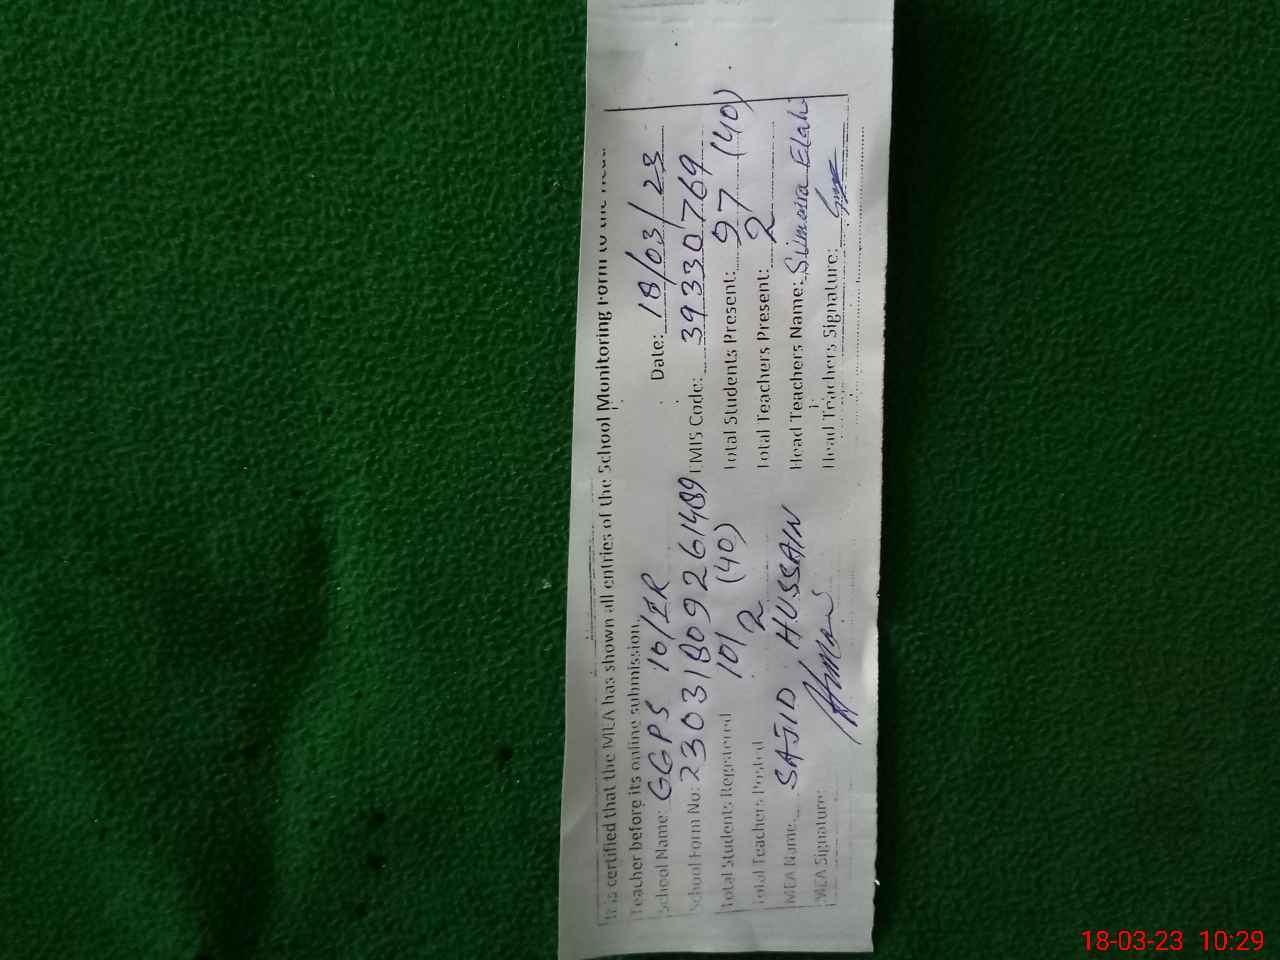 It is certified that the MEA has shown all entries of the School Monitoring Form to the Head
Teacher before its online submission.
School Name: GGPS 10/1R Date: 18/03/23
School Form No: 23031809261489 EMIS Code: 39330769
Total Students Registered 101 (40) Total Students Present: 97 (40)
Total Teachers Posted 2 Total Teachers Present: 2
MEA Name: SAJID HUSSAIN Head Teachers Name: Sumaira Elahi
MEA Signature: Head Teachers Signature:
18-03-23 10:29